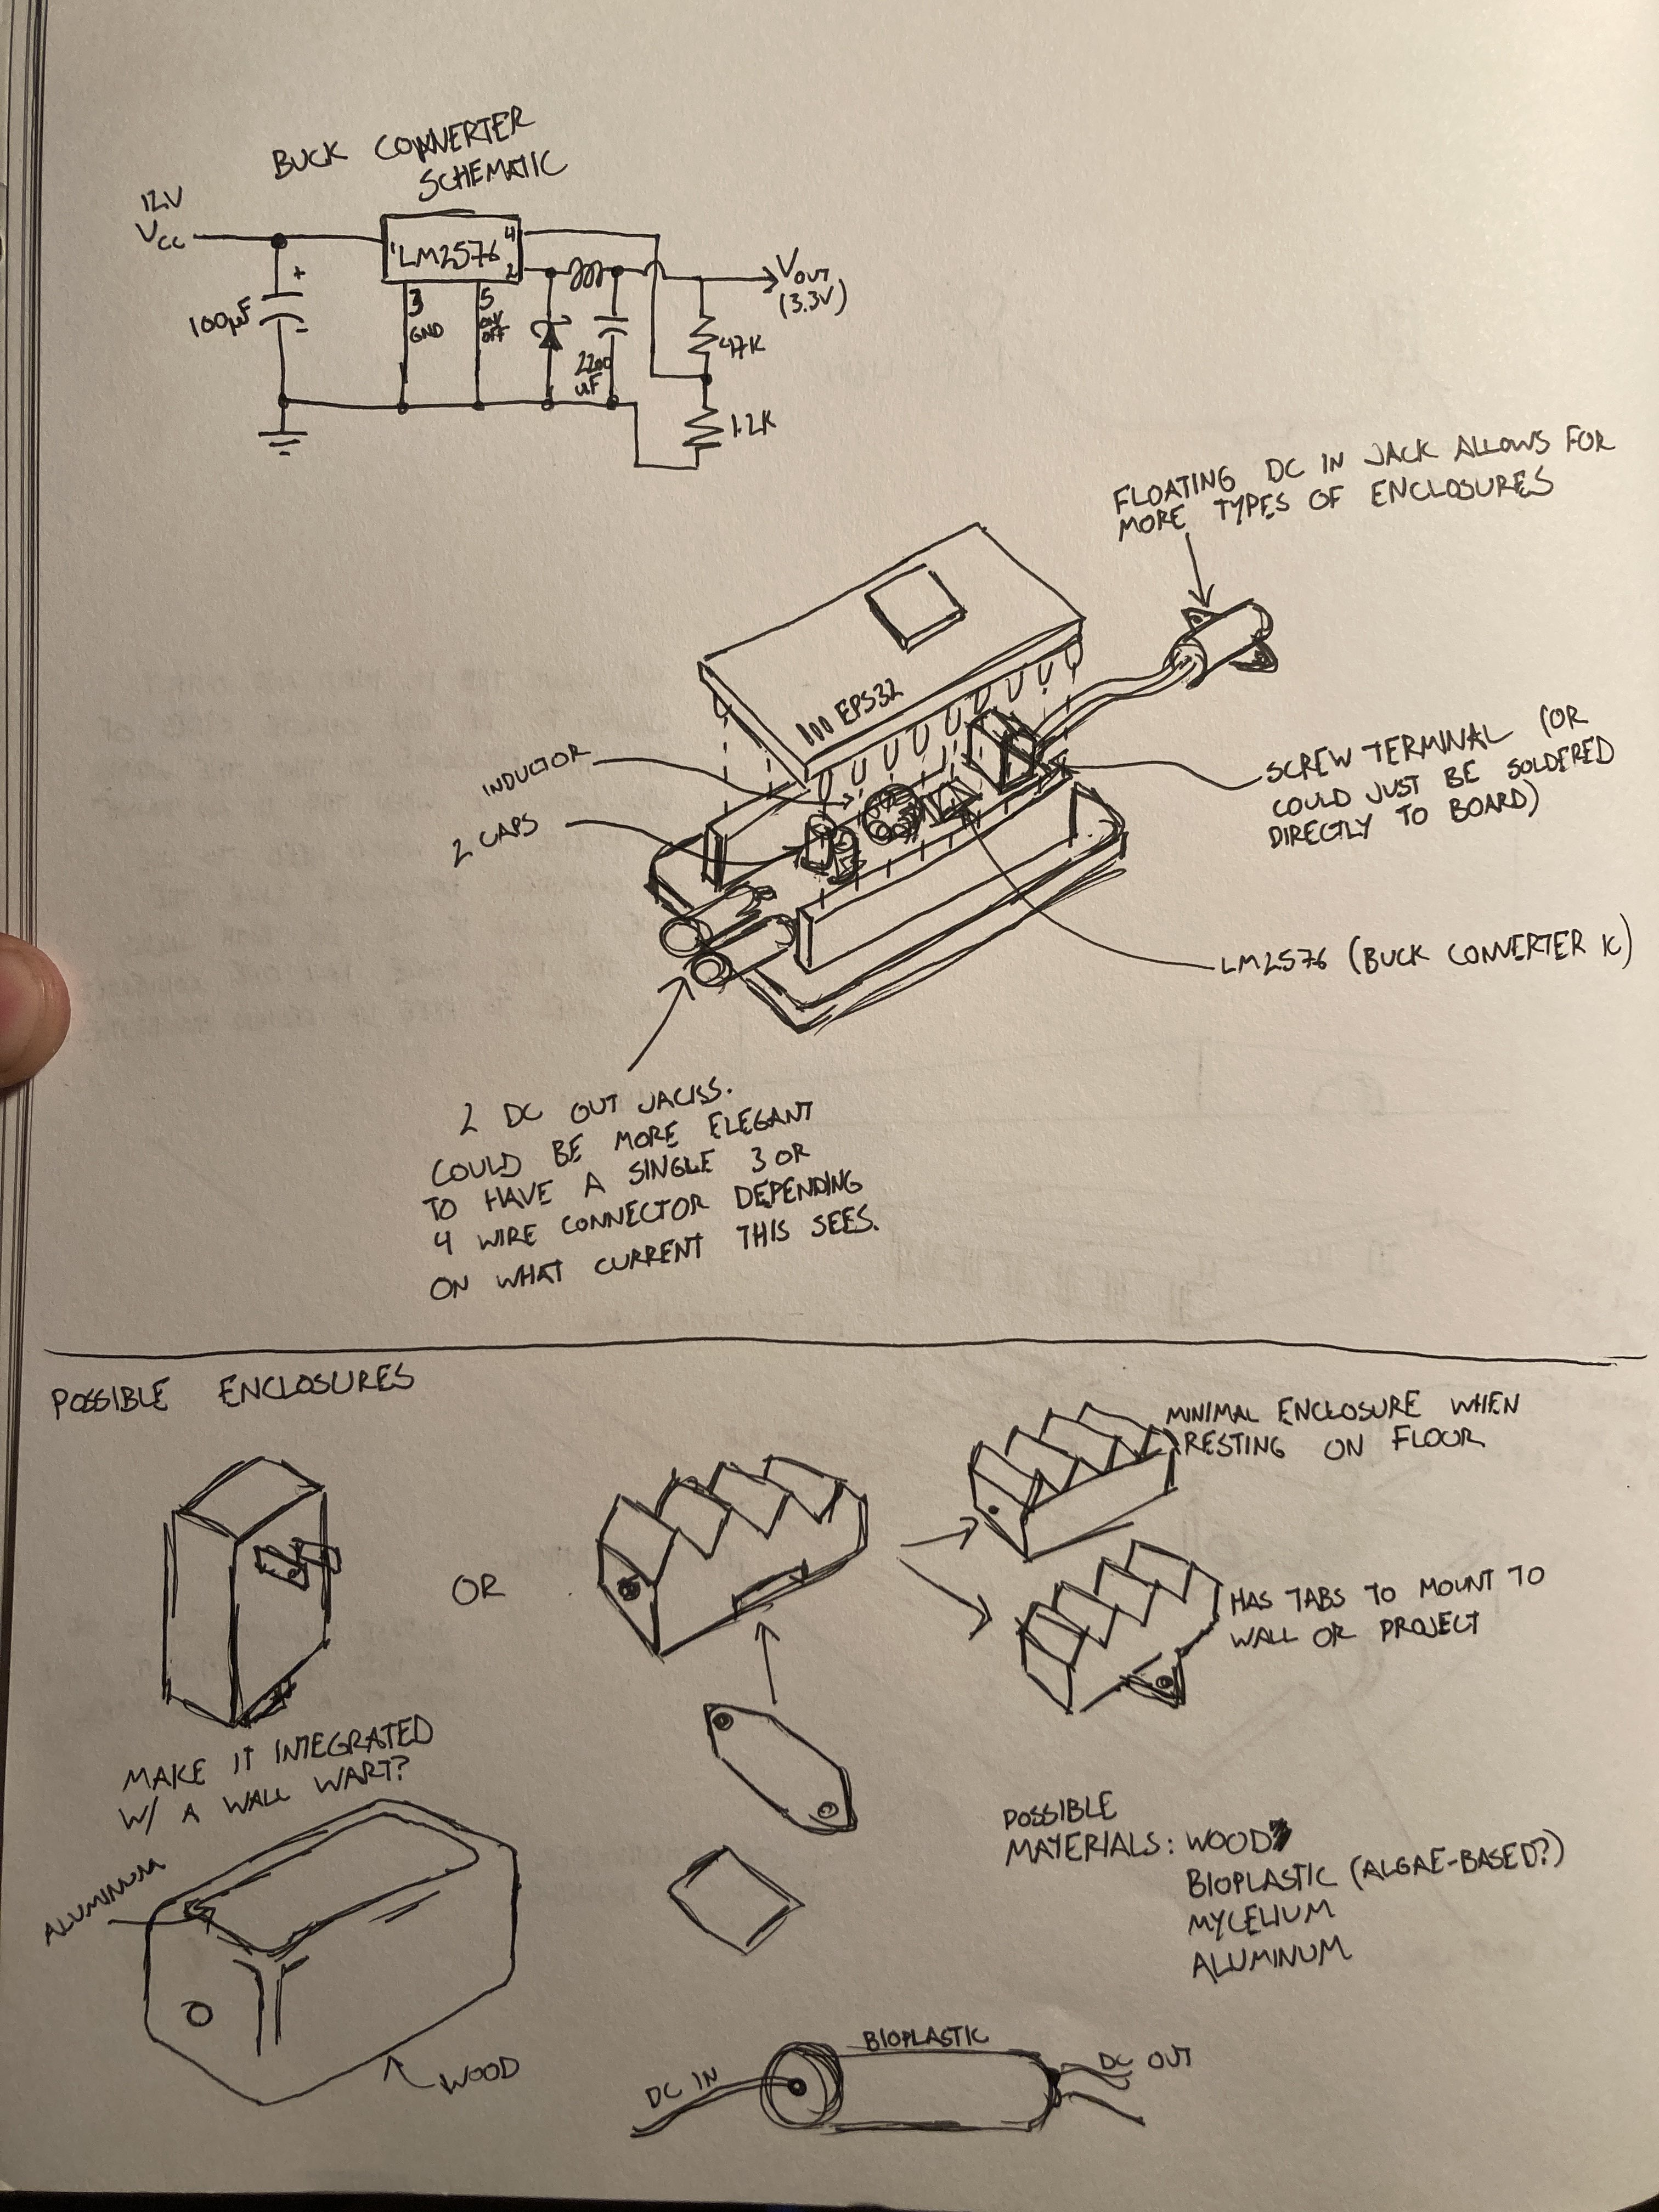 BUCK CONVERTER
SCHEMATIC
12V
VCC
100µF
+
-
1
LM2576
4
2
3
GND
5
ON/
OFF
2200
uF
VOUT
(3.3V)
47K
1.2K
FLOATING DC IN JACK ALLOWS FOR
MORE TYPES OF ENCLOSURES
EPS32
INDUCTOR
2 CAPS
SCREW TERMINAL (OR
COULD JUST BE SOLDERED
DIRECTLY TO BOARD)
LM2576 (BUCK CONVERTER IC)
2 DC OUT JACKS.
COULD BE MORE ELEGANT
TO HAVE A SINGLE 3 OR
4 WIRE CONNECTOR DEPENDING
ON WHAT CURRENT THIS SEES.
POSSIBLE ENCLOSURES
OR
MINIMAL ENCLOSURE WHEN
RESTING ON FLOOR
HAS TABS TO MOUNT TO
WALL OR PROJECT
MAKE IT INTEGRATED
W/ A WALL WART?
ALUMINUM
WOOD
POSSIBLE
MATERIALS: WOOD
BIOPLASTIC (ALGAE-BASED?)
MYCELIUM
ALUMINUM
BIOPLASTIC
DC IN
DC OUT